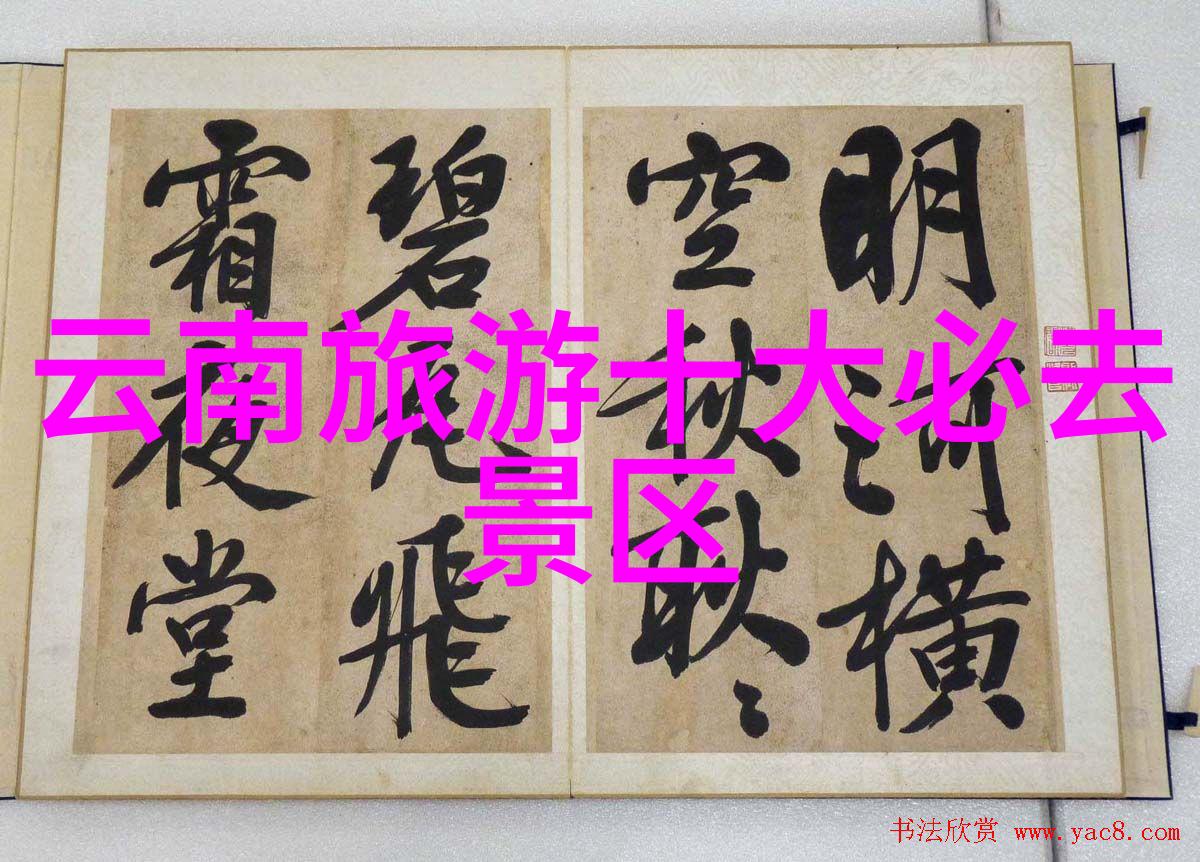 云南旅游十大必去
景区
明河橫
空秋耿々
碧瓦飛
霜夜堂
书法欣赏 www.yac8.com